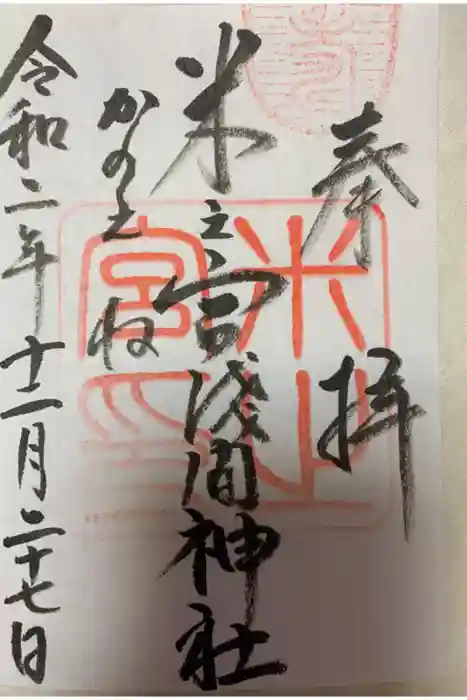 奉拝
米之宮浅間神社
かのえね
令和二年十一月二十七日
米之
宮印